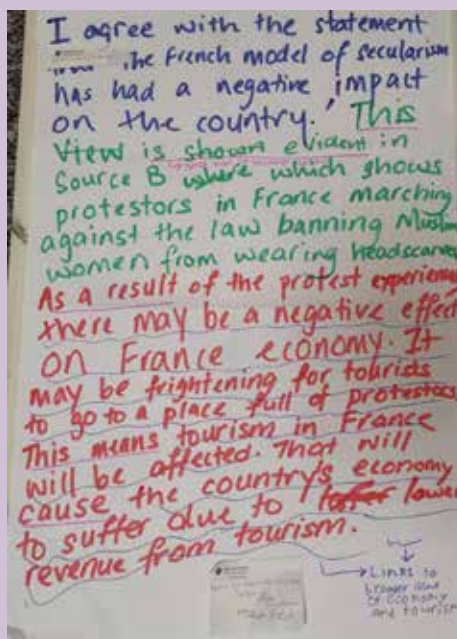 I agree with the statement
the French model of secularism
has had a negative impact
on the country.' This
view is shown evident in
Source B where which shows
protestors in France marching
against the law banning Muslim
women from wearing headscarves
As a result of the protest
there may be a negative effect
on France economy. It
may be frightening for tourists
to go to a place full of protestors
This means tourism in France
will be affected. That will
cause the country's economy
to suffer due to lower
revenue from tourism.
Links to
broader issue
of economy
and tourism